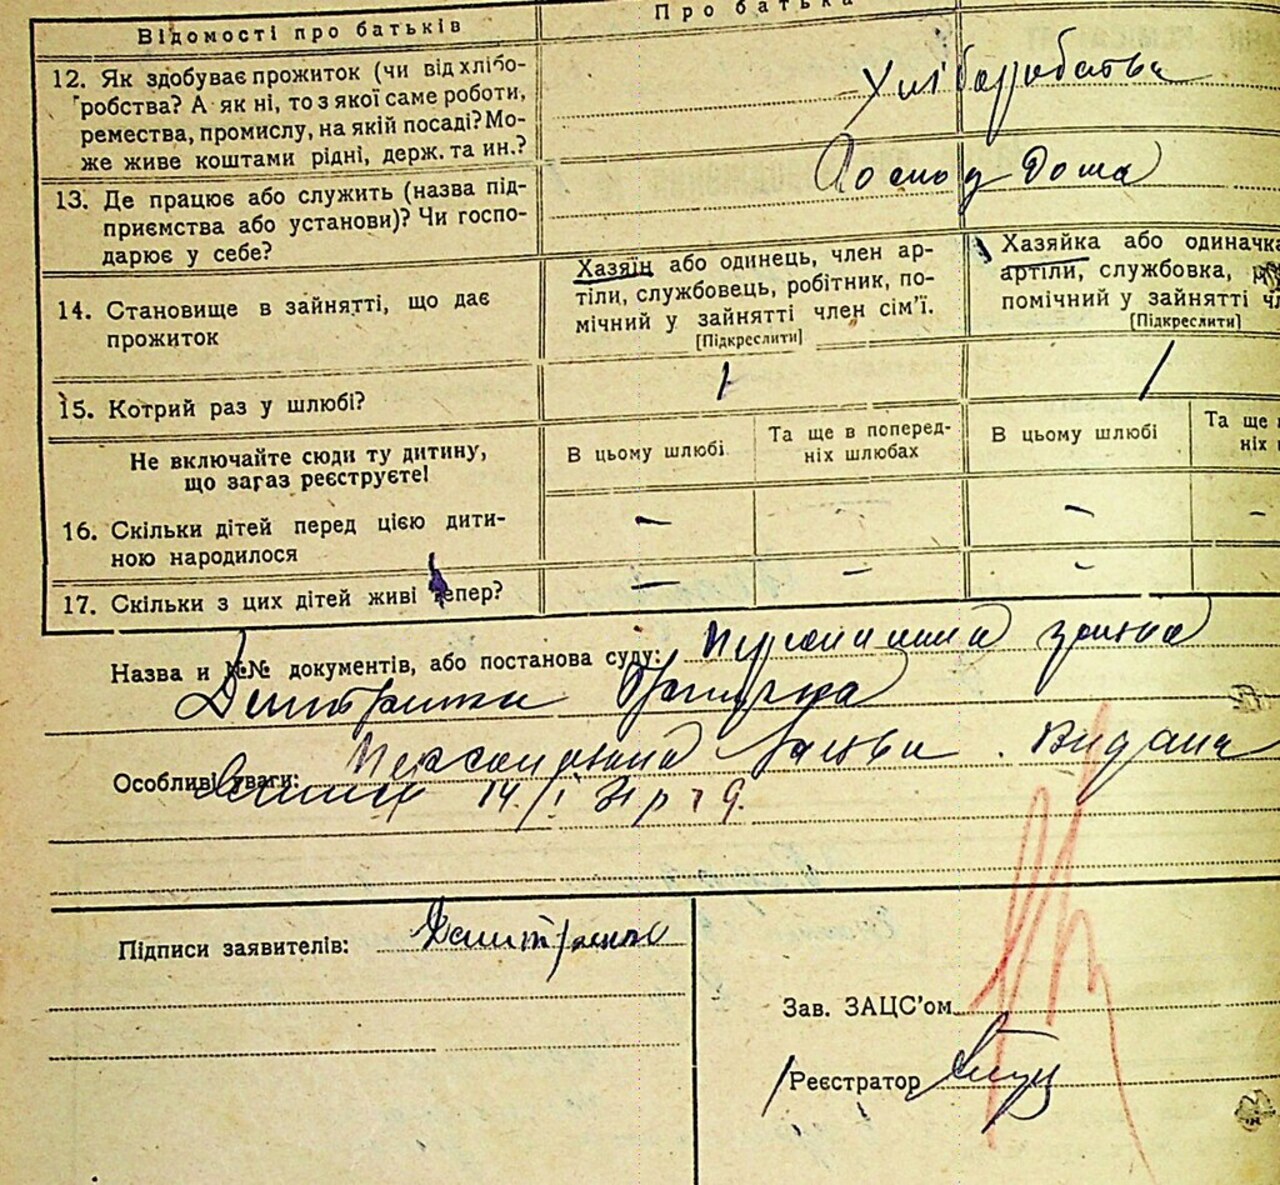 Відомості про батьків
Про батька
12. Як здобуває прожиток (чи від хлібо-
робства? А як ні, то з якої саме роботи,
ремества, промислу, на якій посаді? Мо-
же живе коштами рідні, держ. та ин.?
Хліборобства
13. Де працює або служить (назва під-
приємства або установи)? Чи госпо-
дарює у себе?
Господ дома
14. Становище в зайнятті, що дає
прожиток
Хазяїн або одинець, член ар-
тіли, службовець, робітник, по-
мічний у зайнятті член сім'ї.
[Підкреслити]
Хазяйка або одиначка
артіли, службовка,
помічний у зайнятті чл
[Підкреслити]
15. Котрий раз у шлюбі?
1
1
Не включайте сюди ту дитину,
що загаз реєструєте!
В цьому шлюбі
Та ще в поперед-
ніх шлюбах
В цьому шлюбі
Та ще
ніх
16. Скільки дітей перед цією дити-
ною народилося
–
–
–
17. Скільки з цих дітей живі тепер?
–
–
–
Назва и №№ документів, або постанова суду:
Особливі уваги:
Видана
14/I 31 р
Підписи заявителів:
Зав. ЗАЦС'ом
Реєстратор